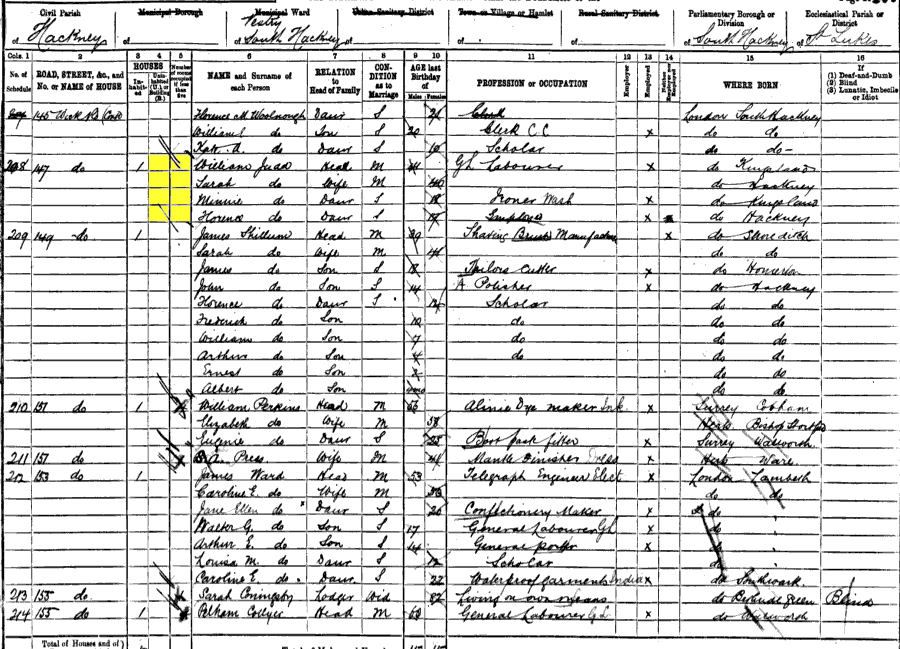 Civil Parish
Municipal Borough
Municipal Ward
Urban Sanitary District
Town or Village or Hamlet
Rural Sanitary District
Parliamentary Borough or Division
Ecclesiastical Parish or District
of Hackney
of
Vestry of South Hackney
of
of
of
of South Hackney
of St Lukes
Cols. 1 2 3 4 5 6 7 8 9 10 11 12 13 14 15 16
No. of Schedule
ROAD, STREET, &c., and No. or NAME of HOUSE
HOUSES
NAME and Surname of each Person
RELATION to Head of Family
CONDITION as to Marriage
AGE last Birthday of
Males Females
PROFESSION or OCCUPATION
Employer
Employed
WHERE BORN
If
(1) Deaf-and-Dumb
(2) Blind
(3) Lunatic, Imbecile or Idiot
Florence M. Woolnough Daur S 21 Clerk London South Hackney
William do Son S 20 Clerk C C x do do
Kate A. do Daur S Scholar do do
208 147 do 1 William Judd Head M 41 Gl Labourer x do Kingsland
Sarah do Wife M 40 do Hackney
Minnie do Daur S 18 Ironer Wash x do Kingsland
Florence do Daur S 17 x do Hackney
209 149 do 1 James Skillum Head M 39 Shaving Brush Manufacture x do Shoreditch
Sarah do Wife M do do
James do Son S 18 Tailors Cutter x do Homerton
John do Son S 14 A Polisher x do Hackney
Florence do Daur S 12 Scholar do do
Frederick do Son 10 do do do
William do Son 7 do do do
Arthur do Son 4 do do do
Ernest do Son do do
Albert do Son do do
210 151 do 1 William Perkins Head M 53 Dye maker Ink x Surrey Cobham
Elizabeth do Wife M 58 Herts Bishop Stortford
Eugenie do Daur S 25 Boot fitter x Surrey Walworth
211 151 do Press Wife M 41 Mantle Finisher x Herts Ware
212 153 do 1 James Ward Head M 53 Telegraph Engineer Elect x London Lambeth
Caroline E. do Wife M do do
Jane Ellen do Daur S 20 Confectionery Maker x do
Walter G. do Son S 17 General Labourer Gl x do
Arthur E. do Son S 14 General porter x do
Louisa M. do Daur S 12 Scholar do
Caroline E. do Daur S 22 Waterproof garments India x do Southwark
213 155 do Sarah Coningsby Lodger Wid 82 Living on own means do Bethnal Green Blind
214 155 do 1 Pelham Collyer Head M General Labourer Gl x do Walworth
Total of Houses and of